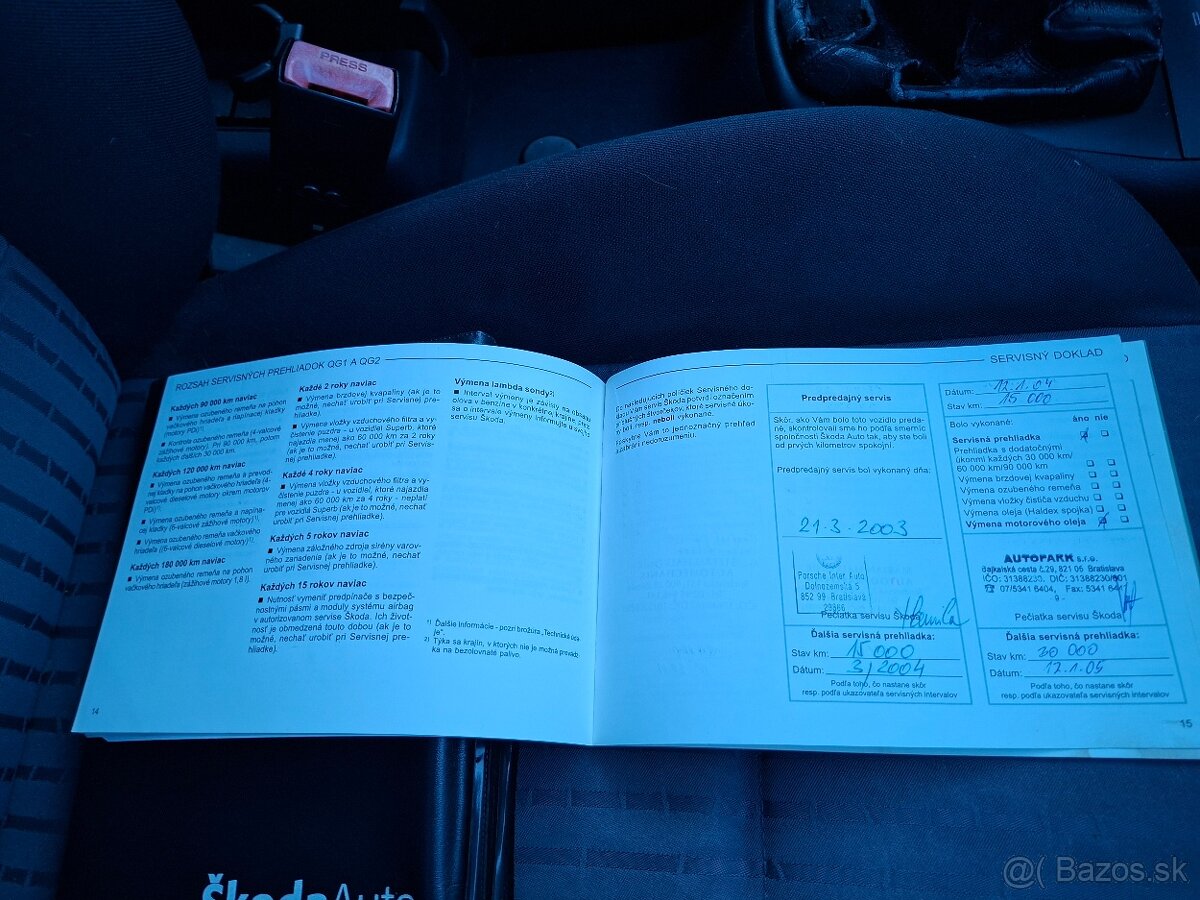 PRESS
ROZSAH SERVISNÝCH PREHLIADOK QG1 A QG2
Každých 90 000 km naviac
■ Výmena ozubeného remeňa na pohon
vačkového hriadeľa a napínacej kladky
motory PDI¹⁾.
■ Kontrola ozubeného remeňa (4-valcové
zážihové motory). Pri 90 000 km, potom
každých ďalších 30 000 km.
Každých 120 000 km naviac
■ Výmena ozubeného remeňa a prevod-
nej kladky na pohon vačkového hriadeľa (4-
valcové dieselové motory okrem motorov
PDI)¹⁾.
■ Výmena ozubeného remeňa a napína-
cej kladky (6-valcové zážihové motory)¹⁾.
■ Výmena ozubeného remeňa vačkového
hriadeľa ((6-valcové dieselové motory)¹⁾.
Každých 180 000 km naviac
■ Výmena ozubeného remeňa na pohon
vačkového hriadeľa (zážihové motory 1,8 l).
14
Každé 2 roky naviac
■ Výmena brzdovej kvapaliny (ak je to
možné, nechať urobiť pri Servisnej pre-
hliadke).
■ Výmena vložky vzduchového filtra a vy-
čistenie puzdra - u vozidiel Superb, ktoré
najazdia menej ako 60 000 km za 2 roky
(ak je to možné, nechať urobiť pri Servis-
nej prehliadke).
Každé 4 roky naviac
■ Výmena vložky vzduchového filtra a vy-
čistenie puzdra - u vozidiel, ktoré najazdia
menej ako 60 000 km za 4 roky - neplatí
pre vozidlá Superb (ak je to možné, nechať
urobiť pri Servisnej prehliadke).
Každých 5 rokov naviac
■ Výmena záložného zdroja sirény varov-
ného zanadenia (ak je to možné, nechať
urobiť pri Servisnej prehliadke).
Každých 15 rokov naviac
■ Nutnosť vymeniť predpínače s bezpeč-
nostnými pásmi a moduly systému airbag
v autorizovanom servise Škoda. Ich život-
nosť je obmedzená touto dobou (ak je to
možné, nechať urobiť pri Servisnej pre-
hliadke).
Výmena lambda sondy²⁾
■ Interval výmeny je závislý na obsahu
olova v benzíne v konkrétnej krajine, preto
sa o intervale výmeny informujte u svojho
servisu Škoda.
¹⁾ Ďalšie informácie - pozri brožúra „Technické úda-
je".
²⁾ Týka sa krajín, v ktorých nie je možná prevádz-
ka na bezolovnaté palivo.
SERVISNÝ DOKLAD
nasledujúcich políčok Servisného do-
kladu Vám servis Škoda potvrdí označením
štvorčekov, ktoré servisné úko-
boli, resp. neboli vykonané.
Vám to jednoznačný prehľad
nedorozumeniu.
Predpredajný servis
Skôr, ako Vám bolo toto vozidlo preda-
né, skontrolovali sme ho podľa smerníc
spoločnosti Škoda Auto tak, aby ste boli
od prvých kilometrov spokojní.
Predpredajný servis bol vykonaný dňa:
21.3.2003
Porsche Inter Auto
Dolnozemská 5
852 99 Bratislava
Pečiatka servisu Škoda
Ďalšia servisná prehliadka:
Stav km: 15 000
Dátum: 3/2004
Podľa toho, čo nastane skôr
resp. podľa ukazovateľa servisných intervalov
Dátum: 12.1.04
Stav km: 15 000
Bolo vykonané: áno nie
Servisná prehliadka
Prehliadka s dodatočnými
úkonmi každých 30 000 km/
60 000 km/90 000 km
Výmena brzdovej kvapaliny
Výmena ozubeného remeňa
Výmena vložky čističa vzduchu
Výmena oleja (Haldex spojka)
Výmena motorového oleja
AUTOPARK s.r.o.
Gajkalská cesta č.29, 821 05 Bratislava
IČO: 31388230, DIČ: 31388230/601
☎ 07/5341 6404, Fax: 5341 6417
- 9 -
Pečiatka servisu Škoda
Ďalšia servisná prehliadka:
Stav km: 30 000
Dátum: 12.1.05
Podľa toho, čo nastane skôr
resp. podľa ukazovateľa servisných intervalov
15
ŠkodaAuto
@( Bazos.sk